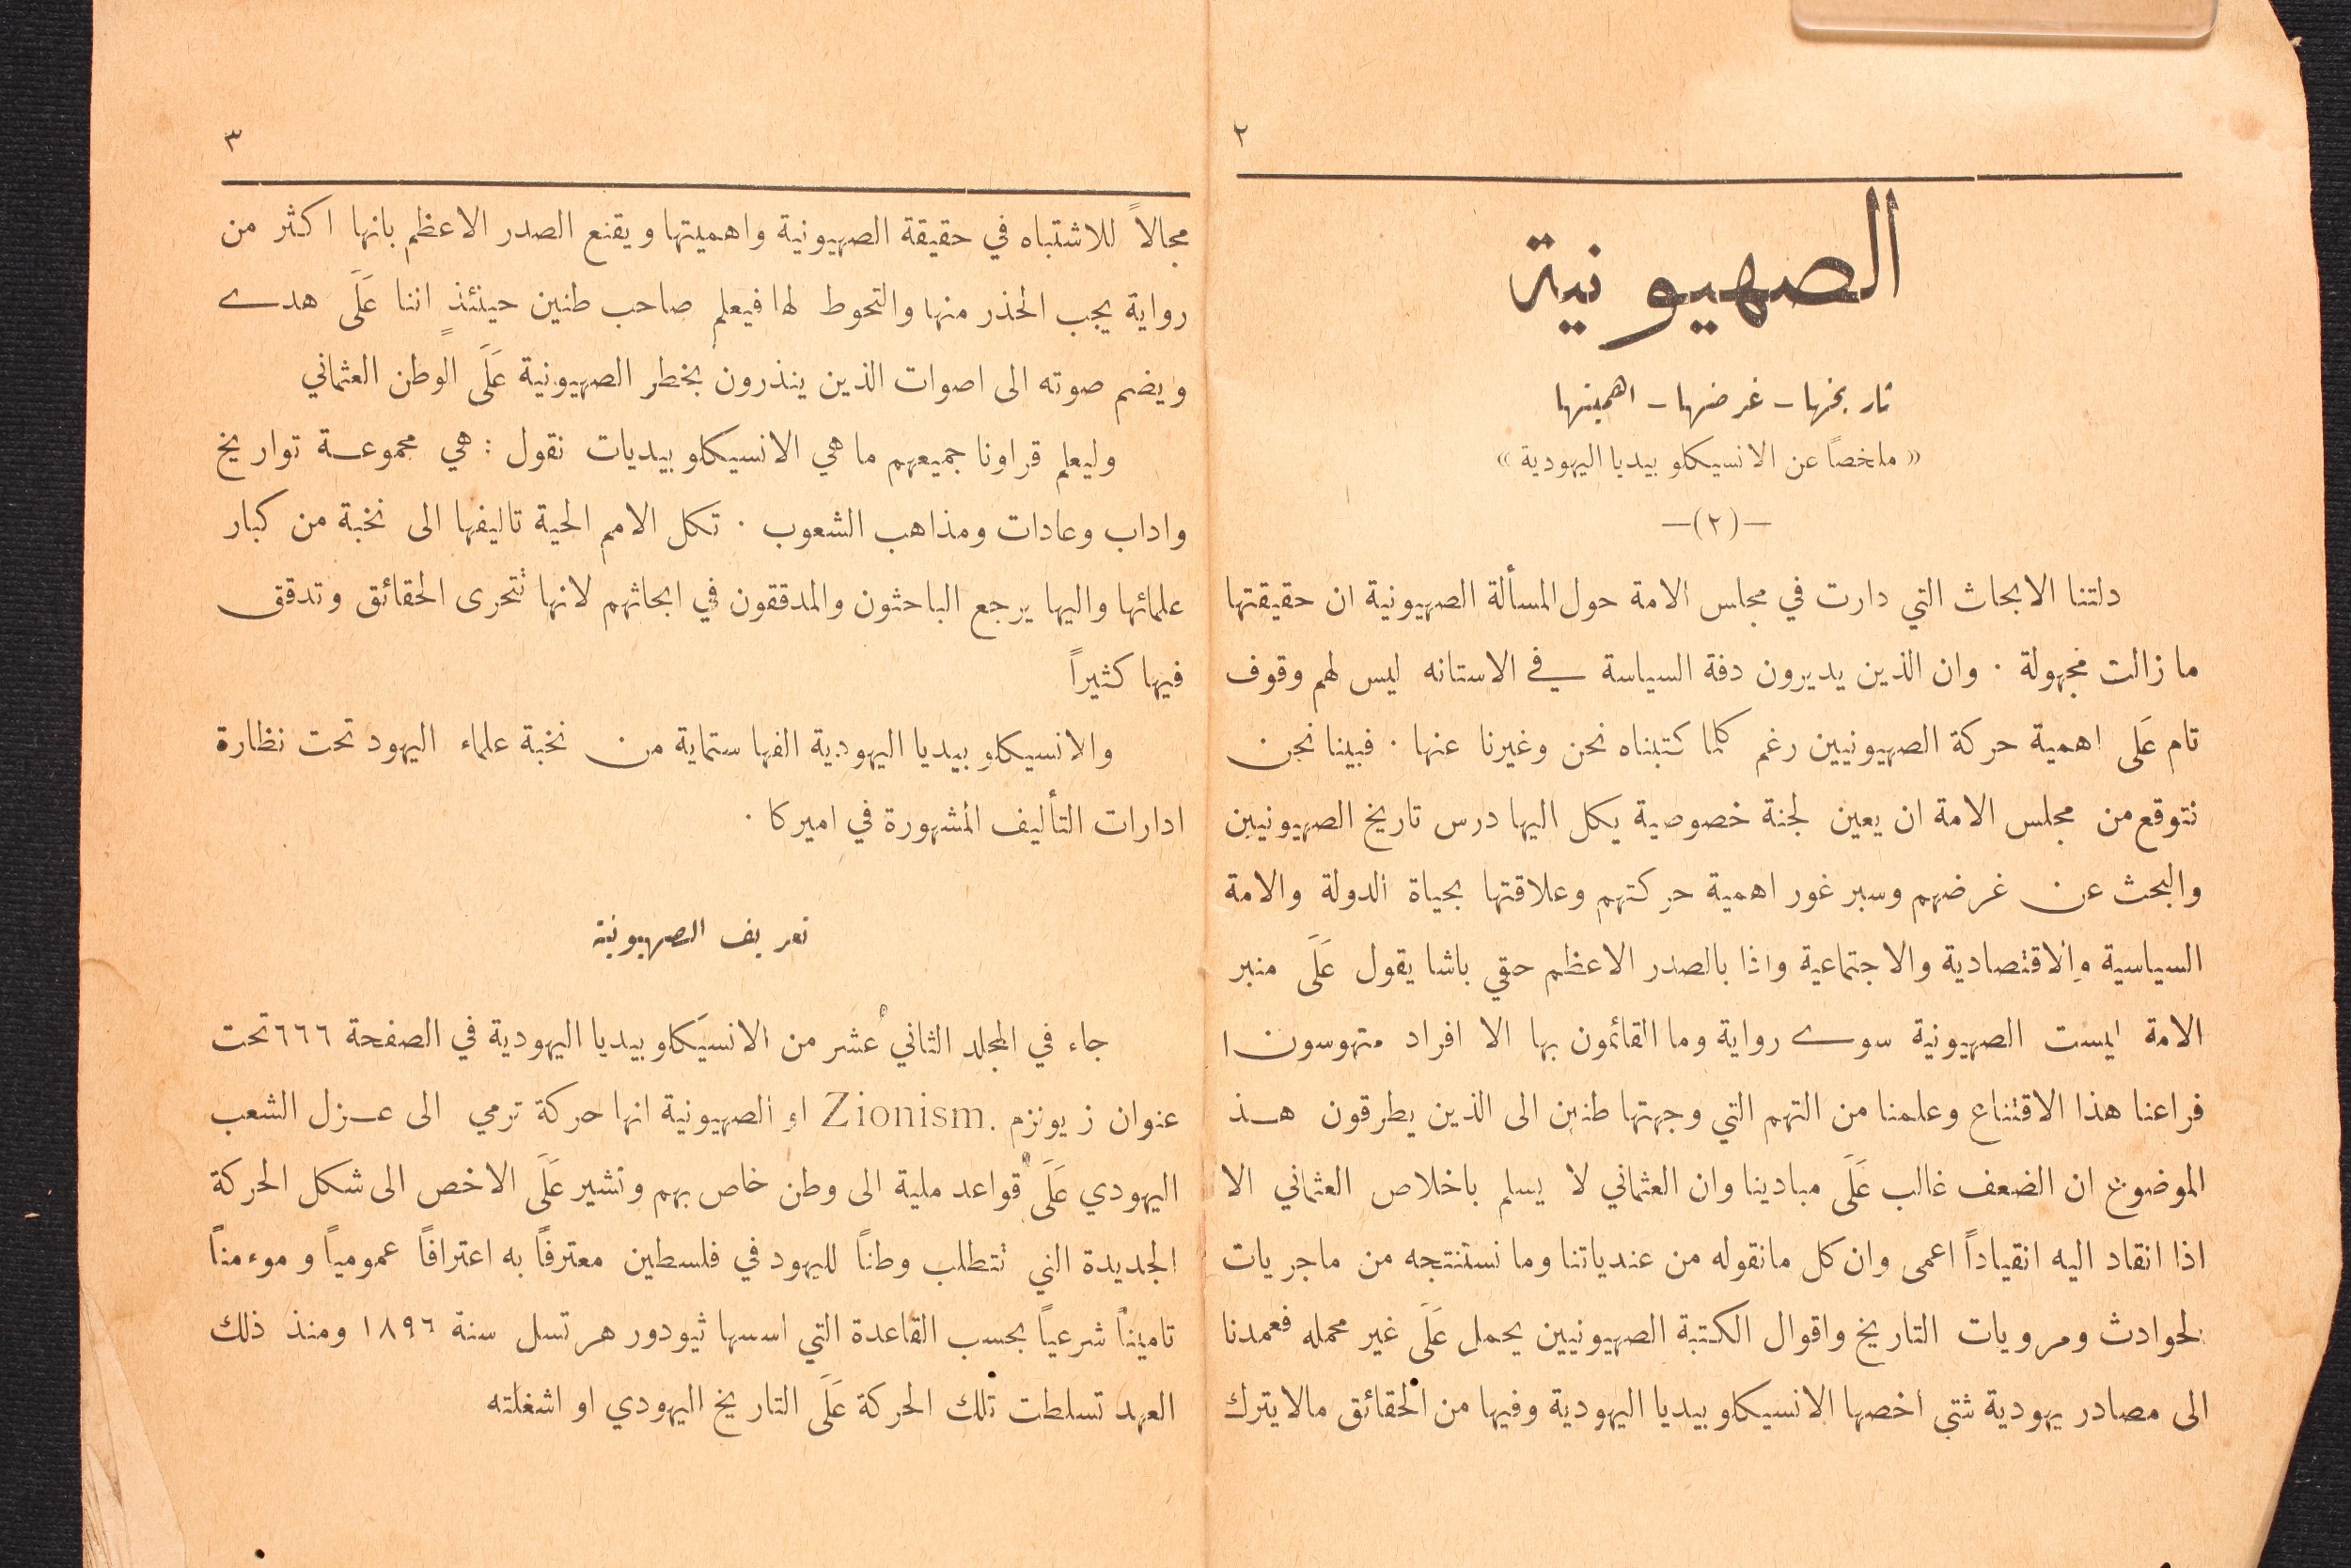 ٢
الصهيونية
تاريخها - غرضها - اهميتها
« ملخصاً عن الانسيكلوبيديا اليهودية »
—(٢)—
دلتنا الابحاث التي دارت في مجلس الامة حول المسألة الصهيونية ان حقيقتها
ما زالت مجهولة . وان الذين يديرون دفة السياسة في الاستانه ليس لهم وقوف
تام عَلَى اهمية حركة الصهيونيين رغم كلما كتبناه نحن وغيرنا عنها . فبينا نحن
نتوقع من مجلس الامة ان يعين لجنة خصوصية يكل اليها درس تاريخ الصهيونيين
والبحث عن غرضهم وسبر غور اهمية حركتهم وعلاقتها بحياة الدولة والامة
السياسية والاقتصادية والاجتماعية واذا بالصدر الاعظم حقي باشا يقول عَلَى منبر
الامة ليست الصهيونية سوى رواية وما القائمون بها الا افراد متهوسون !
فراعنا هذا الاقتناع وعلمنا من التهم التي وجهتها طنين الى الذين يطرقون هذ
الموضوع ان الضعف غالب عَلَى مبادينا وان العثماني لا يسلم باخلاص العثماني الا
اذا انقاد اليه انقياداً اعمى وان كل مانقوله من عندياتنا وما نستنتجه من ماجريات
لحوادث ومرويات التاريخ واقوال الكتبة الصهيونيين يحمل عَلَى غير محمله فعمدنا
الى مصادر يهودية شتى اخصها الانسيكلوبيديا اليهودية وفيها من الحقائق مالا يترك
٣
مجالاً للاشتباه في حقيقة الصهيونية واهميتها ويقنع الصدر الاعظم بانها اكثر من
رواية يجب الحذر منها والتحوط لها فيعلم صاحب طنين حينئذٍ اننا عَلَى هدى
ويضم صوته الى اصوات الذين ينذرون بخطر الصهيونية عَلَى الوطن العثماني
وليعلم قراونا جميعهم ما هي الانسيكلوبيديات نقول : هي مجموعة تواريخ
واداب وعادات ومذاهب الشعوب . تكل الامم الحية تاليفها الى نخبة من كبار
علمائها واليها يرجع الباحثون والمدققون في ابحاثهم لانها تتحرى الحقائق وتدقق
فيها كثيراً
والانسيكلوبيديا اليهودية الفها ستماية من نخبة علماء اليهود تحت نظارة
ادارات التأليف المشهورة في اميركا .
تعريف الصهيونية
جاء في المجلد الثاني عشر من الانسيكلوبيديا اليهودية في الصفحة ٦٦٦ تحت
عنوان زيونزم .Zionism او الصهيونية انها حركة ترمي الى عزل الشعب
اليهودي عَلَى قواعد ملية الى وطن خاص بهم وتشير عَلَى الاخص الى شكل الحركة
الجديدة التي تتطلب وطناً لليهود في فلسطين معترفاً به اعترافاً عمومياً وموءمناً
تاميناً شرعياً بحسب القاعدة التي اسسها ثيودور هرتسل سنة ١٨٩٦ ومنذ ذلك
العهد تسلطت تلك الحركة عَلَى التاريخ اليهودي او اشغلته